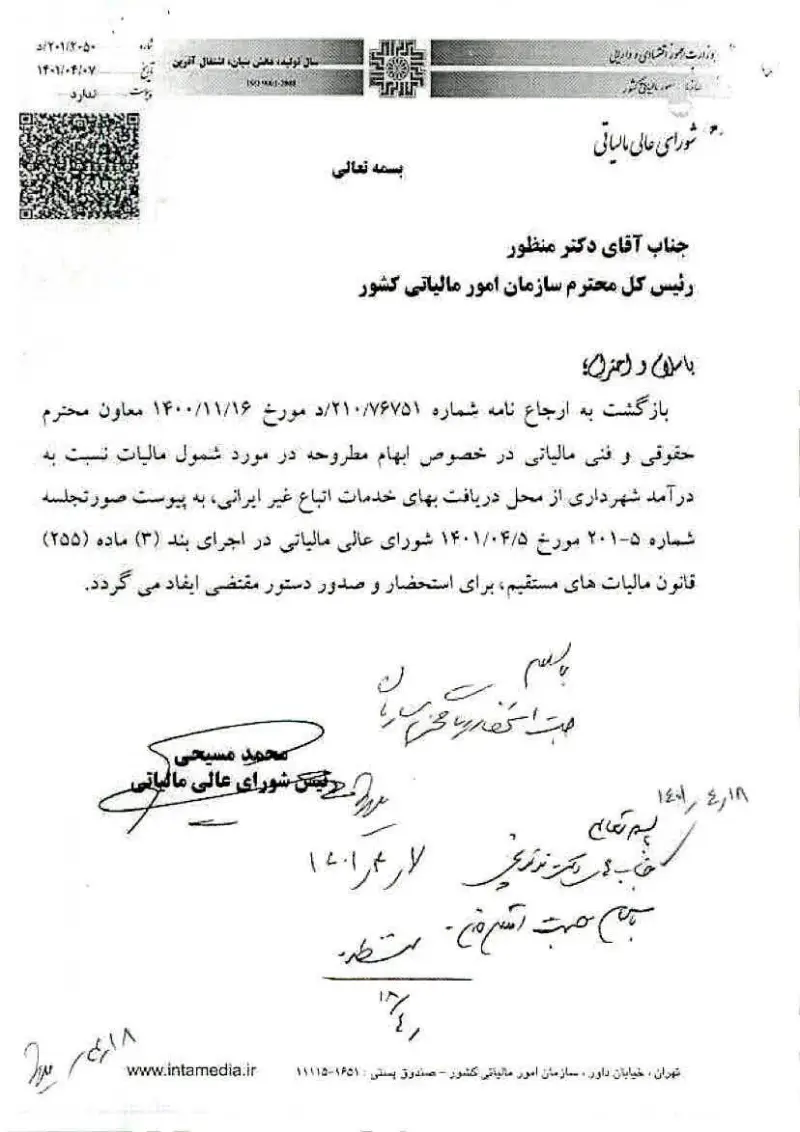 شماره ۲۰۱/۲۰۵۰/د
تاریخ ۱۴۰۱/۰۴/۰۷
پیوست ندارد
سال تولید، دانش بنیان، اشتغال آفرین
ISO 9001-2008
وزارت امور اقتصادی و دارایی
سازمان امور مالیاتی کشور
شورای عالی مالیاتی
بسمه تعالی
جناب آقای دکتر منظور
رئیس کل محترم سازمان امور مالیاتی کشور
با سلام و احترام؛
بازگشت به ارجاع نامه شماره ۲۱۰/۷۶۷۵۱/د مورخ ۱۴۰۰/۱۱/۱۶ معاون محترم
حقوقی و فنی مالیاتی در خصوص ابهام مطروحه در مورد شمول مالیات نسبت به
درآمد شهرداری از محل دریافت بهای خدمات اتباع غیر ایرانی، به پیوست صورتجلسه
شماره ۵-۲۰۱ مورخ ۱۴۰۱/۰۴/۵ شورای عالی مالیاتی در اجرای بند (۳) ماده (۲۵۵)
قانون مالیات های مستقیم، برای استحضار و صدور دستور مقتضی ایفاد می گردد.
باسلام
جهت استحضار ریاست محترم سازمان
محمد مسیحی
رئیس شورای عالی مالیاتی
۱۴۰۱/۴/۱۸
بسمه تعالی
جناب آقای دکتر
باسلام جهت اقدام
منظور
۴/۱۸
www.intamedia.ir
تهران ، خیابان داور ، سازمان امور مالیاتی کشور - صندوق پستی : ۱۶۵۱-۱۱۱۱۵